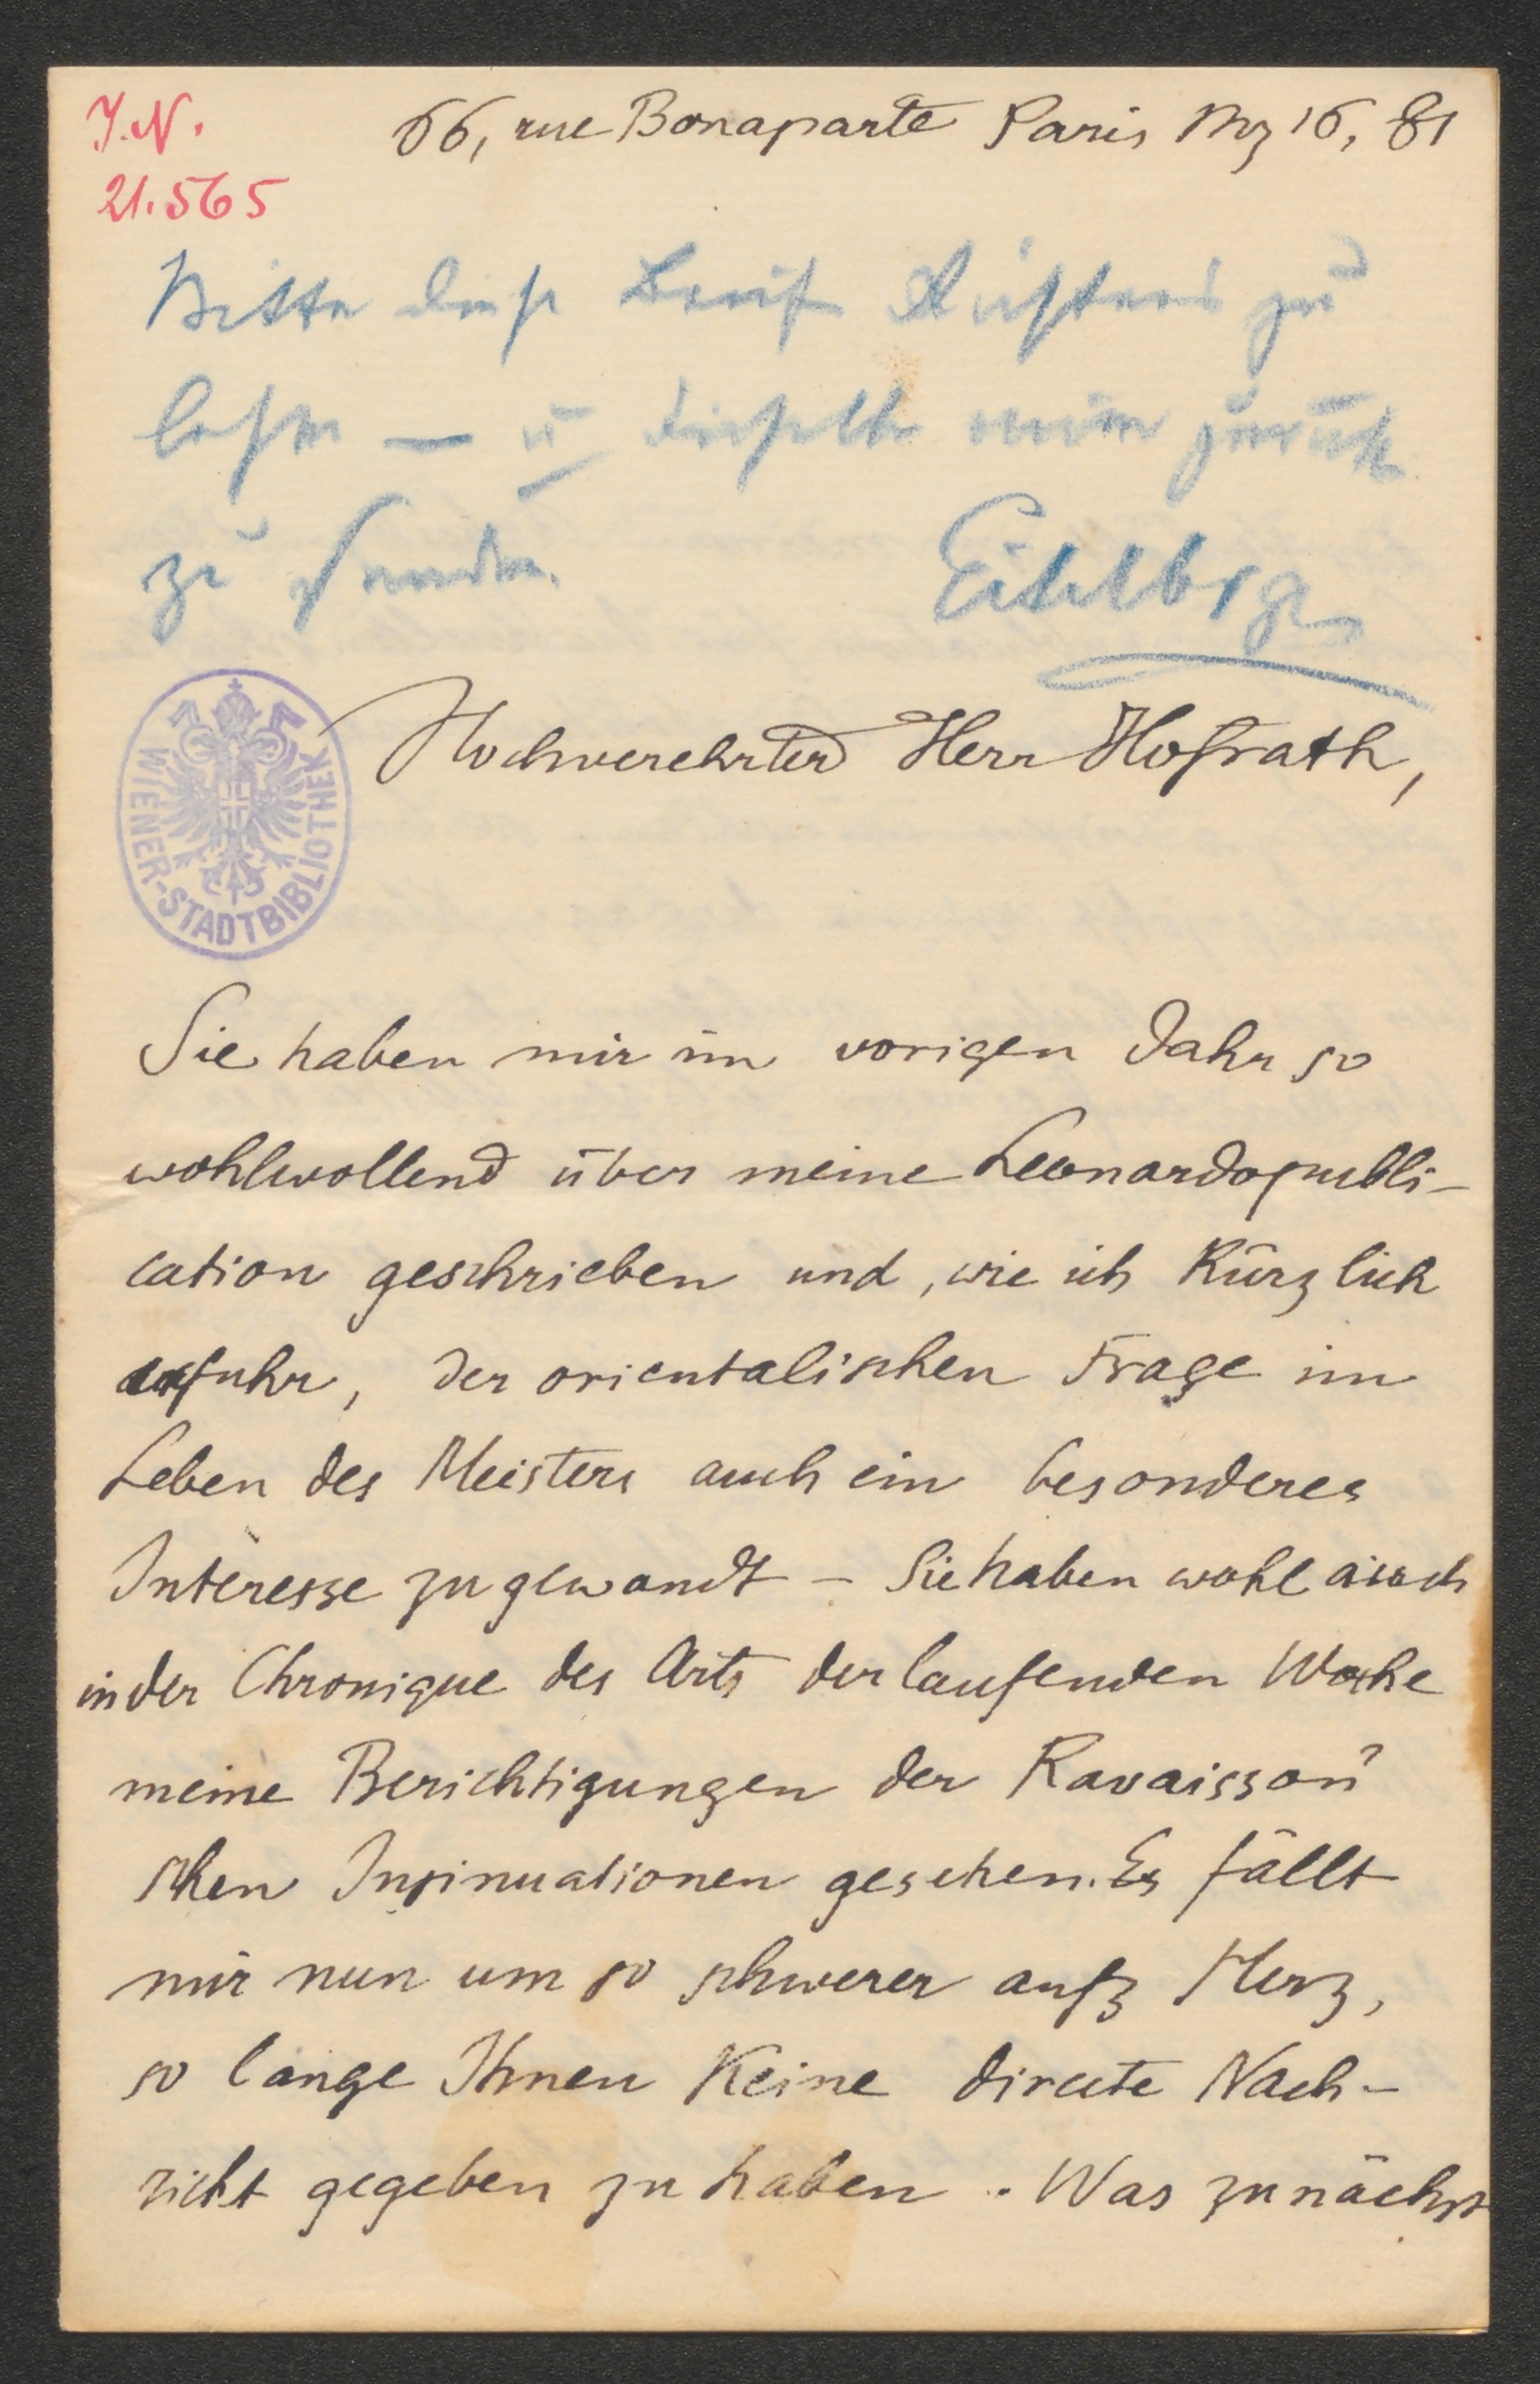 J.N.
21.565
66, rue Bonaparte Paris Mz 16, 81
Bitte diese Briefe Richters zu
lesen – u dieselbe mir zurük
zu senden.
Eitelbrgr
WIENER-STADTBIBLIOTHEK
Hochverehrter Herr Hofrath,
Sie haben mir im vorigen Jahr so
wohlwollend über meine Leonardopubli-
cation geschrieben und, wie ich kürzlich
erfuhr, der orientalischen Frage im
Leben des Meisters auch ein besonderes
Interesse zugewandt – Sie haben wohl auch
in der Chronique des Arts der laufenden Woche
meine Berichtigungen der Ravaisson'
schen Insinuationen gesehen. Es fällt
mir nun um so schwerer aufs Herz,
so lange Ihnen keine directe Nach-
richt gegeben zu haben. Was zunächst